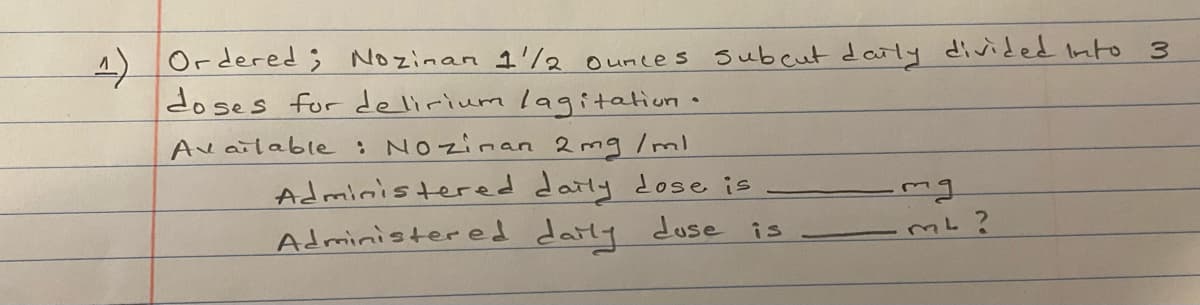 1) Ordered; Nozinan 1 1/2 ounces subcut daily divided into 3
doses for delirium /agitation.
Available : Nozinan 2mg /ml
Administered daily dose is ______ mg
Administered daily dose is ______ mL?